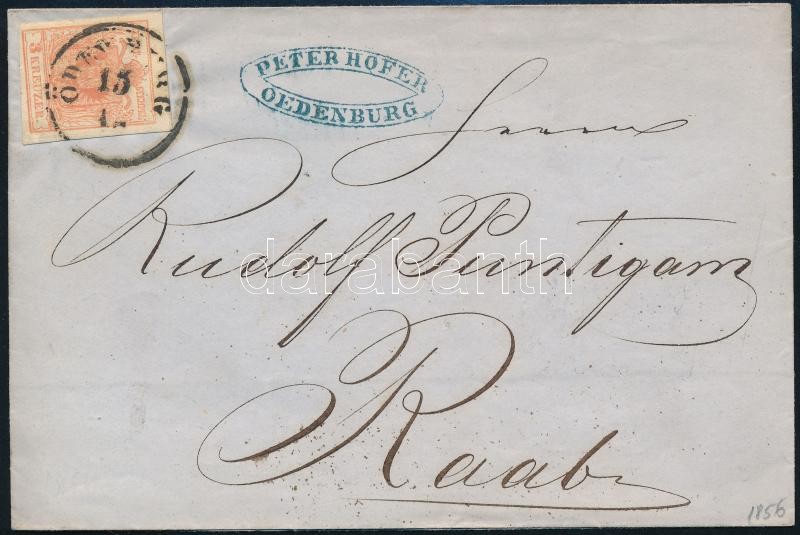 3 KREUZER
ÖDENBURG
15
12
PETER HOFER
OEDENBURG
Herrn
Rudolf Puntigam
darabanth
Raab
1856